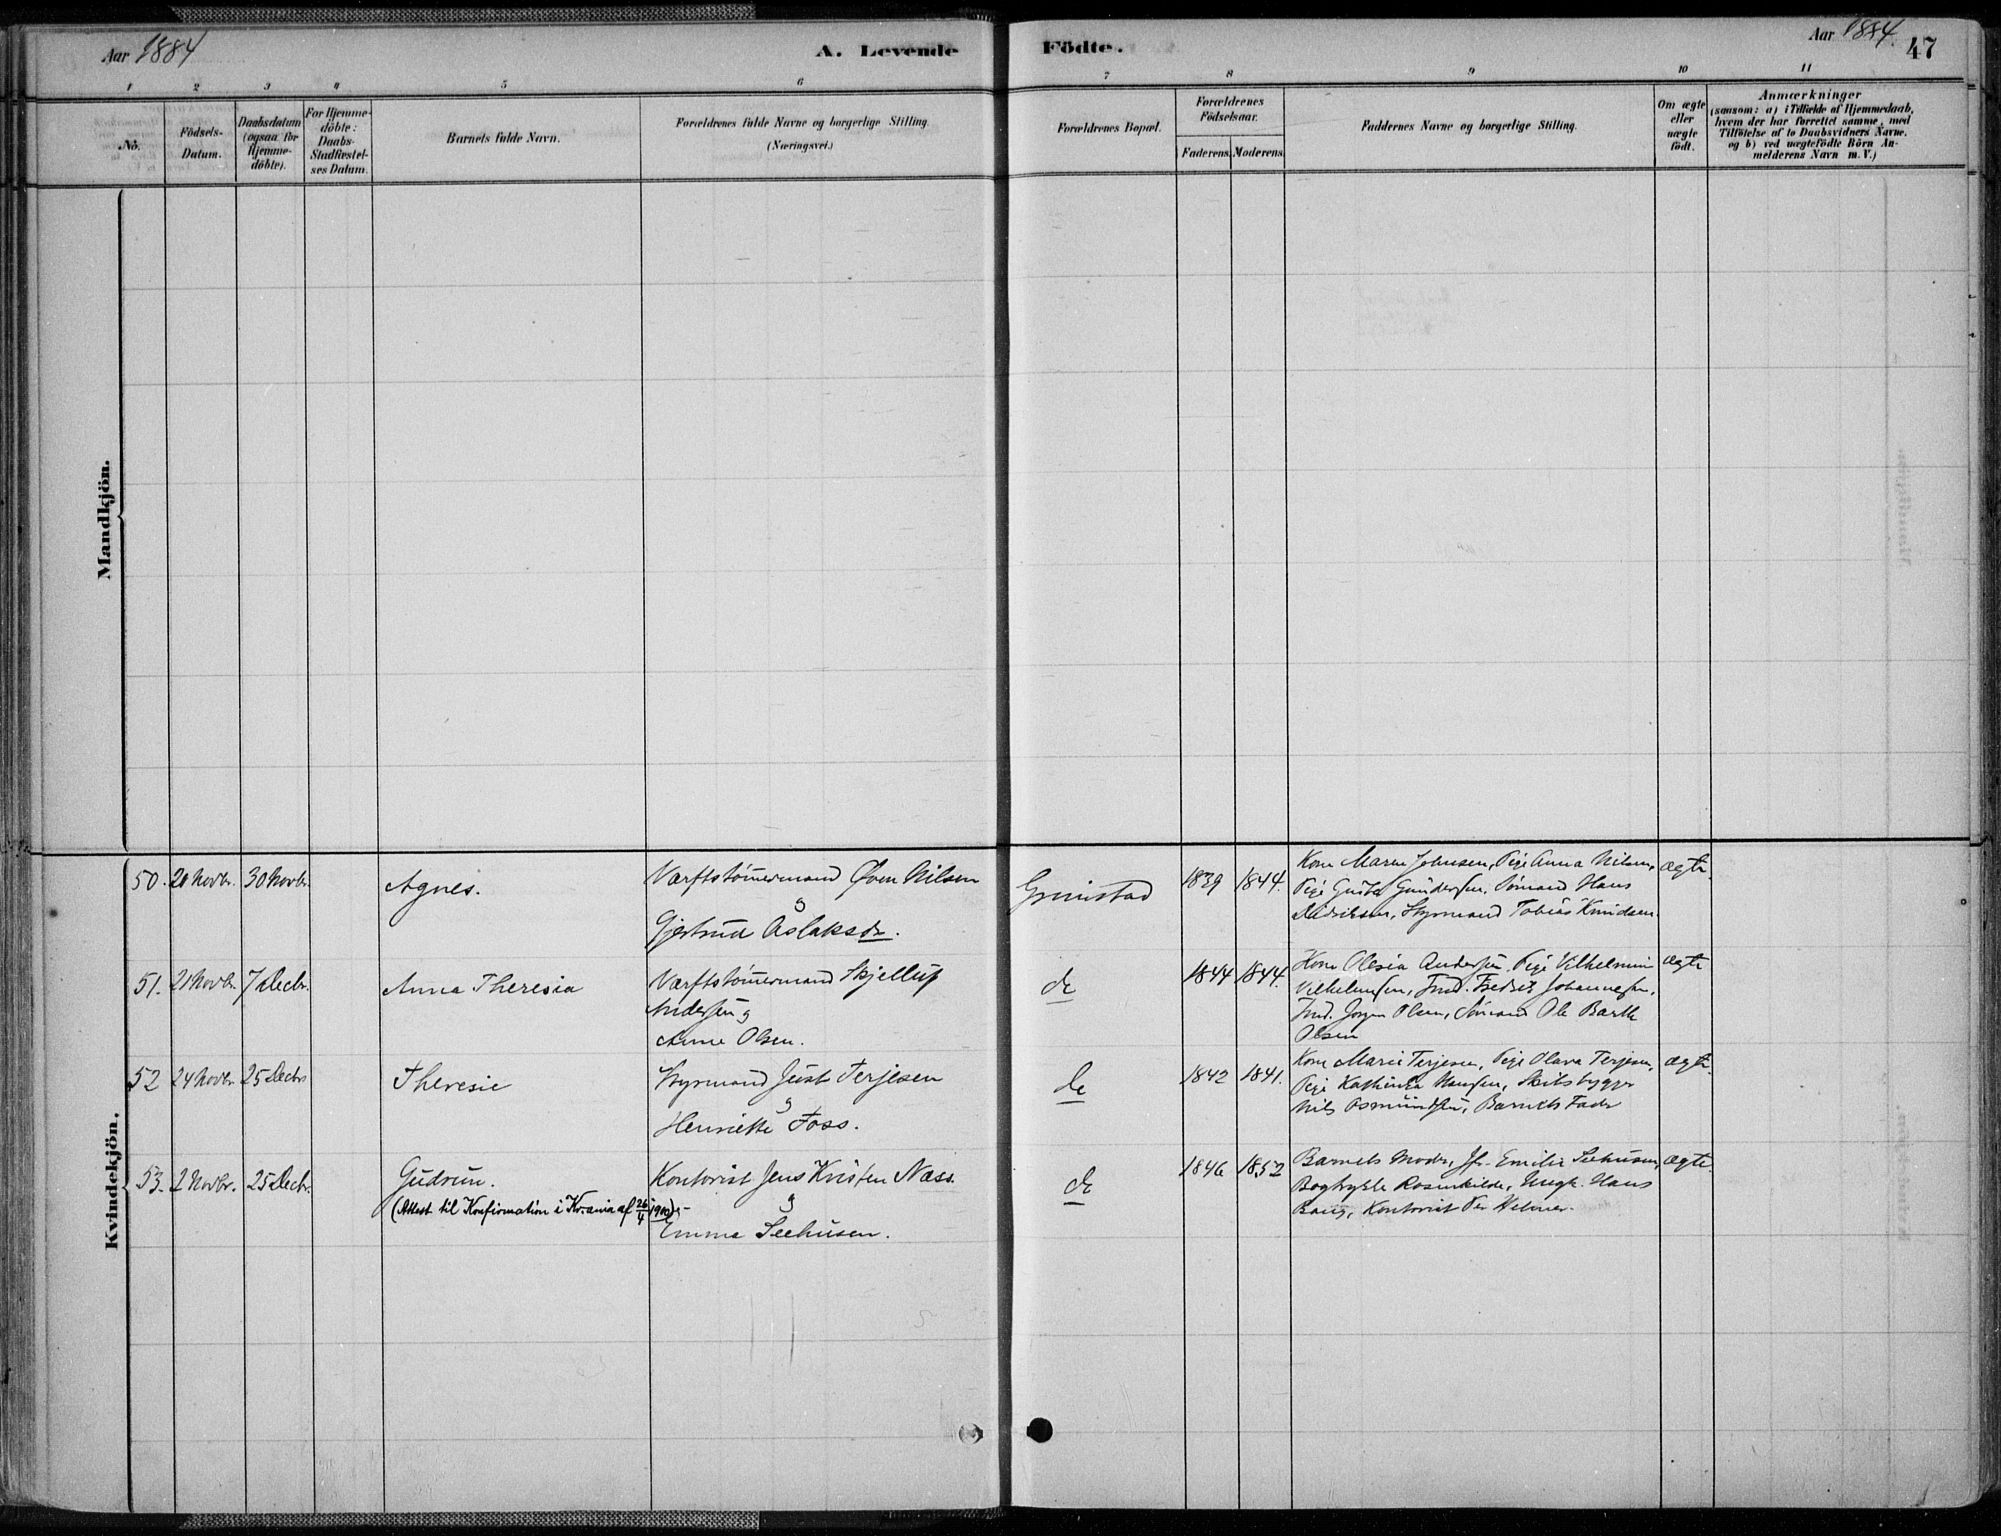 Aar 1884
A. Levende
Födte.
Aar 1884.
47
1 2 3 4 5 6 7 8 9 10 11
No.
Födsels-
Datum.
Daabsdatum
(ogsaa for
Hjemme-
döbte).
For Hjemme-
döbte:
Daabs-
Stadfæstel-
ses Datum.
Barnets fulde Navn.
Forældrenes fulde Navne og borgerlige Stilling.
(Næringsvei.)
Forældrenes Bopæl.
Forældrenes
Födselsaar.
Faderens. Moderens.
Faddernes Navne og borgerlige Stilling.
Om ægte
eller
uægte
födt.
Anmærkninger
(saasom: a) i Tilfælde af Hjemmedaab,
hvem der har forrettet samme, med
Tilföielse af to Daabsvidners Navne,
og b) ved uægtefödte Börn An-
melderens Navn m. V.)
Mandkjön.
Kvindekjön.
50. 20 Novbr. 30 Novbr.
Agnes.
Værftstømmermand Øven Nilsen
og
Gjertrud Aslaksdr.
Grimstad
1839 1844.
Kone Maren Johnsen, Pige Anna Nilsen,
Pige Gusta Gundersen, Sømand Hans
Didriksen, Styrmand Tobias Knudsen.
ægte.
51. 21 Novbr. 7 Decbr.
Anna Theresia
Værftstømmermand Skjellup
Andersen og
Anne Olsen.
do
1844 1844.
Kone Olesia Andersen, Pige Vilhelmine
Vilhelmsen, Tmd. Fredrik Johannesen,
Tmd. Jørgen Olsen, Sømand Ole Barth
Olsen
ægte
52 24 Novbr. 25 Decbr
Theresie
Styrmand Just Terjesen
og
Henriette Foss.
do
1842 1841.
Kone Marie Terjesen, Pige Olava Terjesen,
Pige Kathinka Hansen, Skibsbygger
Nils Osmundsen, Barnets Fader
ægte.
53. 2 Novbr. 25 Decbr.
Gudrun.
(Attest til Konfirmation i Kr.ania af 26/4 1900).-
Kontorist Jens Kristen Næss.
og
Emma Seehusen.
do
1846 1852
Barnets Moder, Jfr. Emilie Seehusen,
Bogtrykker Rosenkilde, Ungk. Hans
Bang, Kontorist Per Helmer.
ægte.